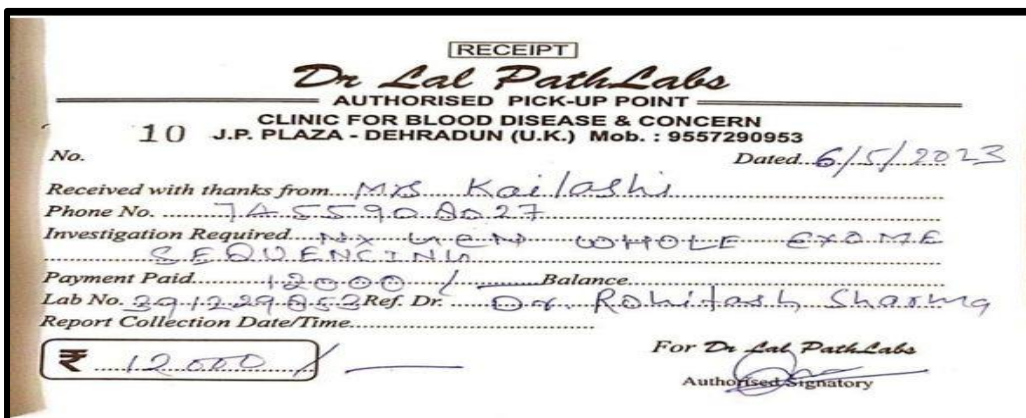 RECEIPT
Dr Lal PathLabs
AUTHORISED PICK-UP POINT
CLINIC FOR BLOOD DISEASE & CONCERN
10 J.P. PLAZA - DEHRADUN (U.K.) Mob. : 9557290953
No. Dated 6/5/2023
Received with thanks from Mrs Kailashi
Phone No.
Investigation Required Nx GEN WHOLE EXOME
SEQUENCING
Payment Paid 12000/- Balance
Lab No. Ref. Dr. Dr. Rohitash Sharma
Report Collection Date/Time
₹ 12000/-
For Dr Lal PathLabs
Authorised Signatory